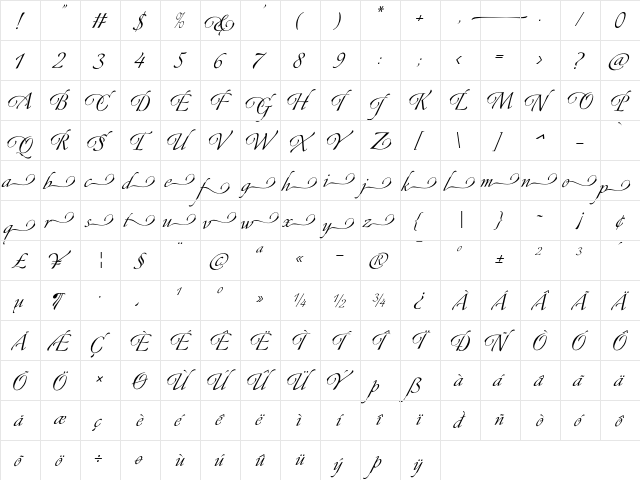 ! " # $ % & ' ( ) * + , - . / 0
1 2 3 4 5 6 7 8 9 : ; < = > ? @
A B C D E F G H I J K L M N O P
Q R S T U V W X Y Z [ \ ] ^ _ `
a b c d e f g h i j k l m n o p
q r s t u v w x y z { | } ~ ¡ ¢
£ ¥ ¦ § ¨ © ª « ¬ ® ¯ ° ± ² ³ ´
µ ¶ · ¸ ¹ º » ¼ ½ ¾ ¿ À Á Â Ã Ä
Å Æ Ç È É Ê Ë Ì Í Î Ï Ð Ñ Ò Ó Ô
Õ Ö × Ø Ù Ú Û Ü Ý Þ ß à á â ã ä
å æ ç è é ê ë ì í î ï ð ñ ò ó ô
õ ö ÷ ø ù ú û ü ý þ ÿ